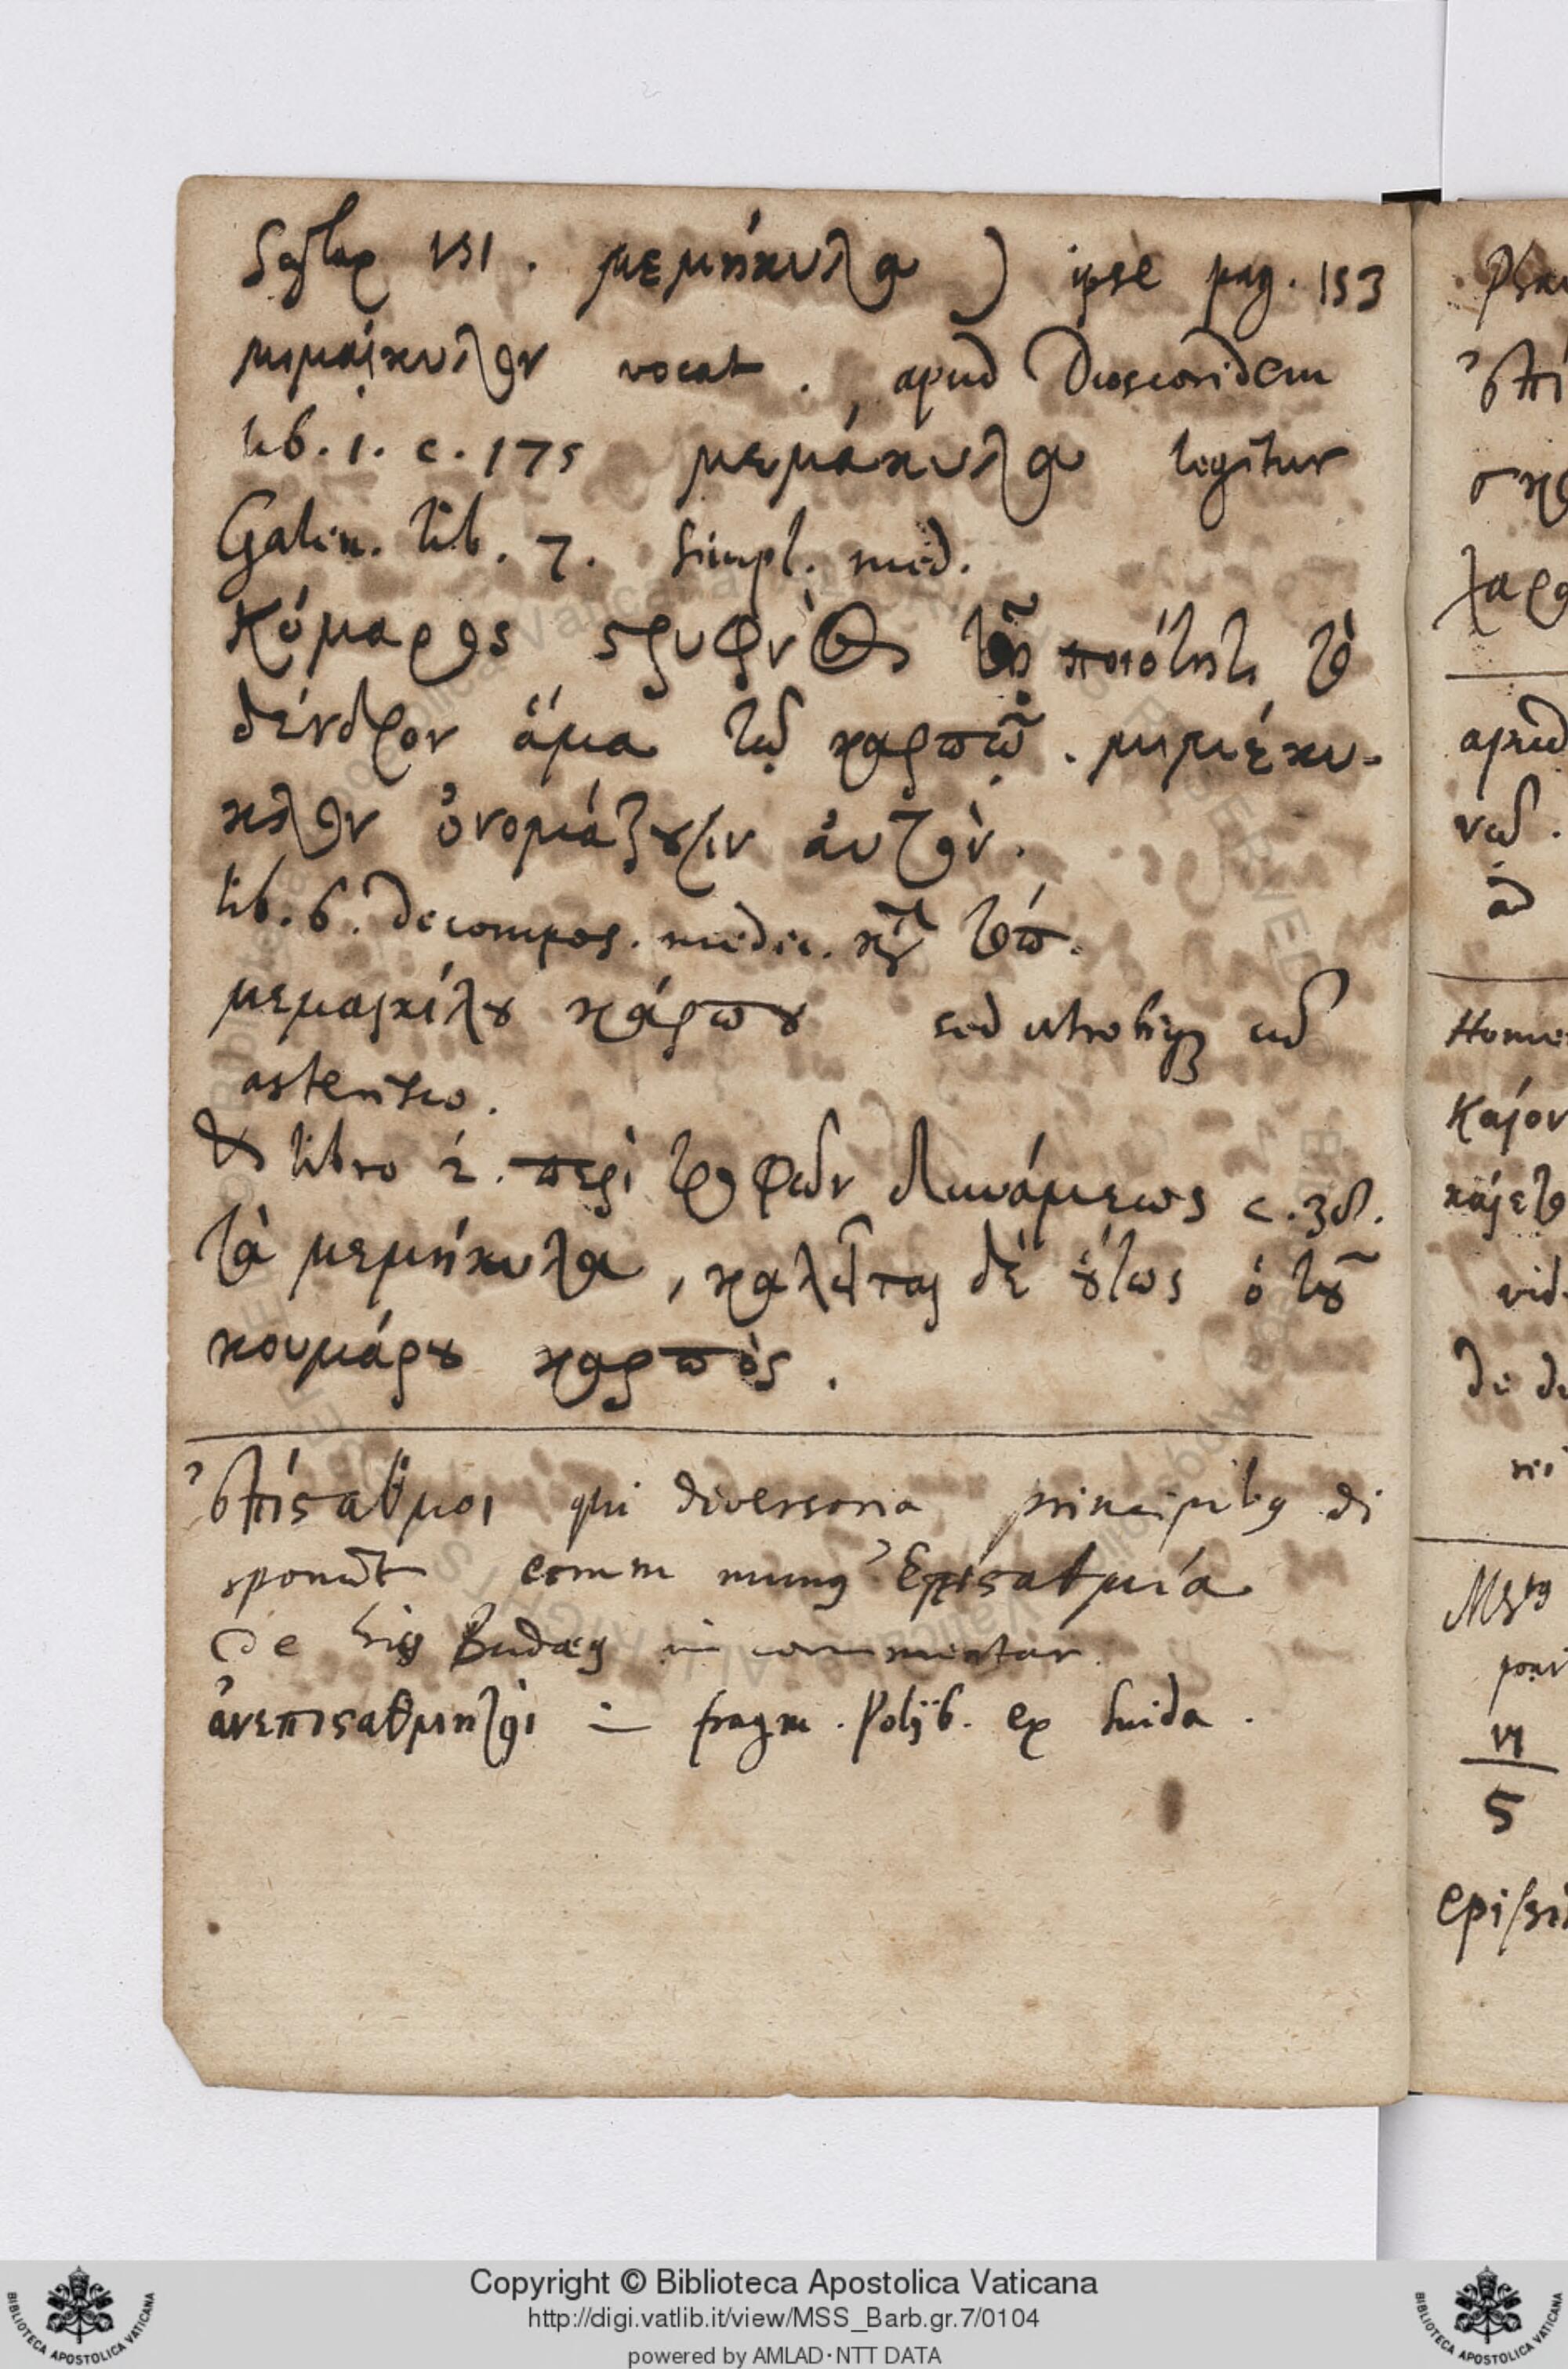 μεμήκυλα) ipse pag. 153
μιμαίκυλον vocat. apud Dioscoridem
lib. 1. c. 175 μεμάκυλα legitur
Galen. lib. 7. simpl. med.
Κόμαρος στρυφνὸς τῆς ποιότητι τὸ
δένδρον ἅμα τῷ καρπῷ. μιμέκυ-
κλον ὀνομάζουσιν ἀυτὸν.
lib. 6. de compos. medic. κατὰ τόπ.
μεμαικίλου κάρπου sed utrobiq; cũ
asterisco.
& libro 2. περὶ τροφῶν δυνάμεως c. 38.
τὰ μεμήκυλα, καλεῖται δὲ ὅυτως ὁ τοῦ
κουμάρου καρπὸς.
ἐπίσταθμοι qui diversoria principibus di
sponũt eorum munus Ἐπισταθμία
de his Budæus in commentar.
ἀνεπισταθμητοὶ in fragm. Polyb. ex Suida.
Psa
ἐπί
σκ
χαρ
apud
νῶ.
ad
Home
Καίον
κάιετο
vid
de d
Ms
pour
VI
5
epi
Copyright © Biblioteca Apostolica Vaticana
http://digi.vatlib.it/view/MSS_Barb.gr.7/0104
powered by AMLAD·NTT DATA
BIBLIOTECA APOSTOLICA VATICANA
BIBLIOTECA APOSTOLICA VATICANA